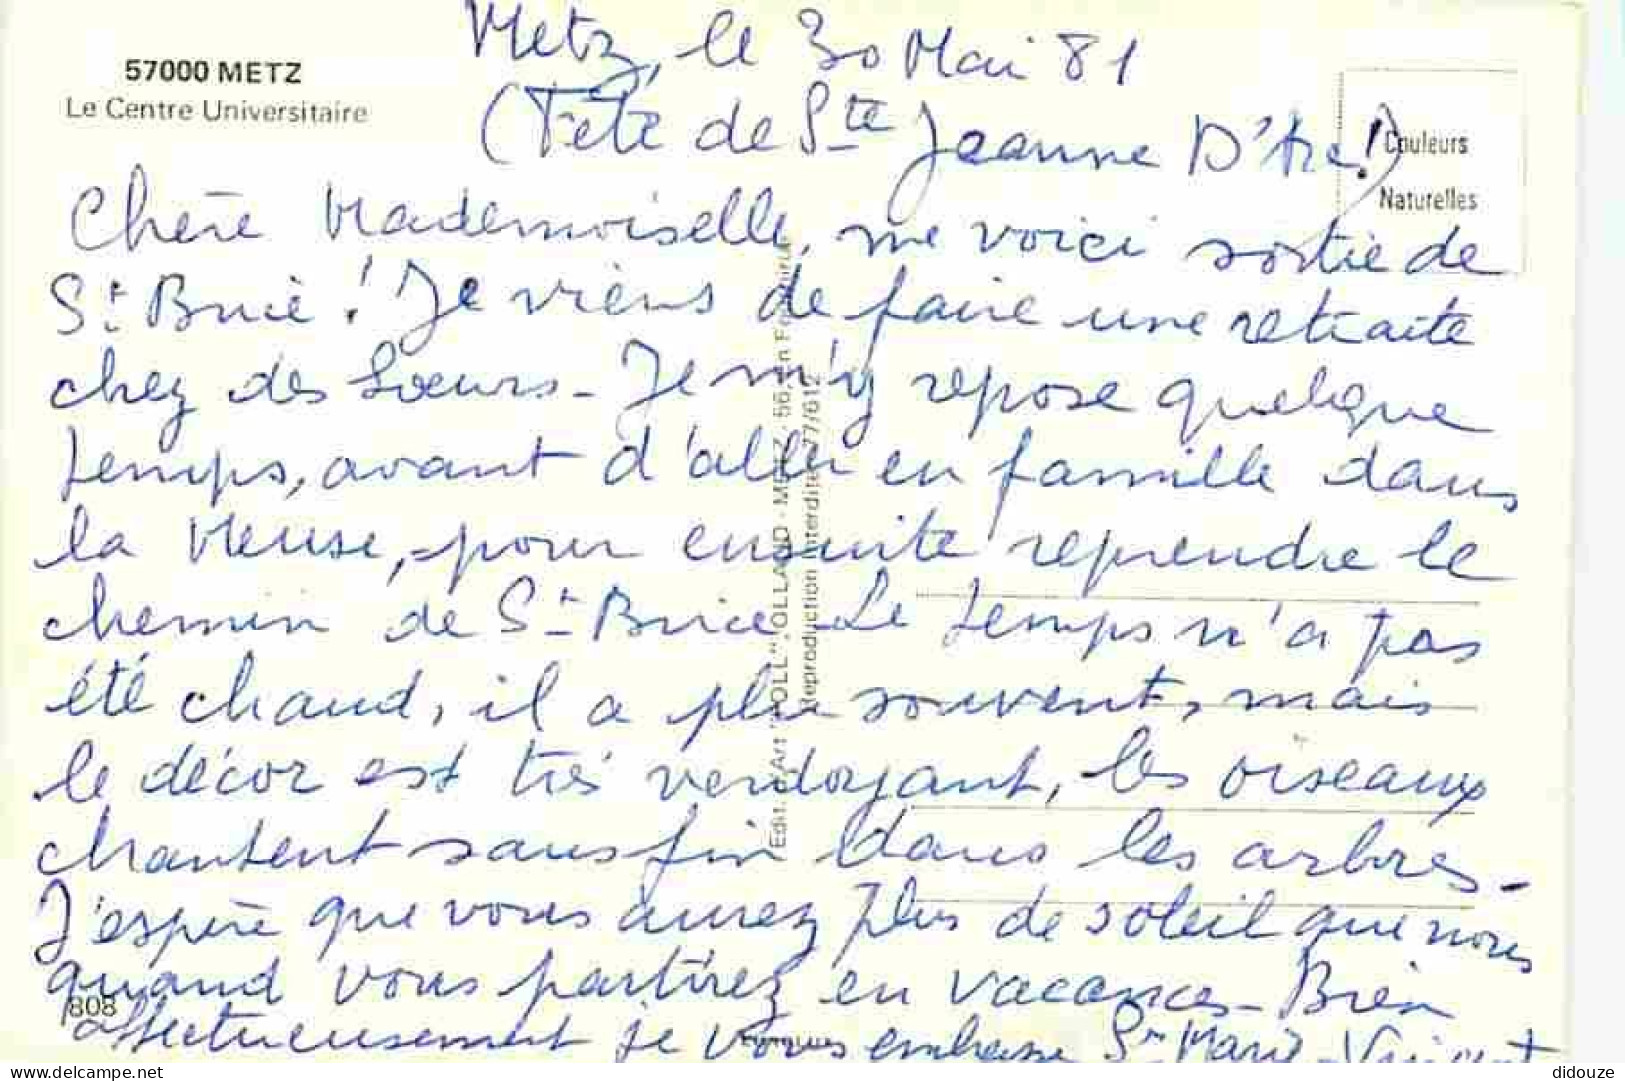 Metz, le 30 Mai 81
57000 METZ
Le Centre Universitaire
(Fête de Ste Jeanne D'Arc!)
Couleurs
Naturelles
Chère Mademoiselle, me voici sortie de
St Brice! Je viens de faire une retraite
chez des Sœurs - Je m'y repose quelque
temps, avant d'aller en famille dans
la Meuse, pour ensuite reprendre le
chemin de St Brice - Le temps n'a pas
été chaud, il a plu souvent, mais
le décor est très verdoyant, les oiseaux
chantent sans fin dans les arbres -
J'espère que vous aurez plus de soleil que nous
quand vous partirez en vacances - Bien
affectueusement je vous embrasse Sr Marie-Vincent
808
Reproduction interdite 77/612
delcampe.net
didouze